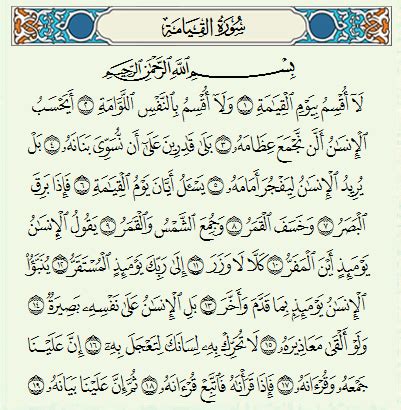 سُورَةُ القِيَامَةِ
بِسْمِ اللَّهِ الرَّحْمَٰنِ الرَّحِيمِ
لَآ أُقْسِمُ بِيَوْمِ ٱلْقِيَـٰمَةِ ١ وَلَآ أُقْسِمُ بِٱلنَّفْسِ ٱللَّوَّامَةِ ٢ أَيَحْسَبُ
ٱلْإِنسَـٰنُ أَلَّن نَّجْمَعَ عِظَامَهُۥ ٣ بَلَىٰ قَـٰدِرِينَ عَلَىٰٓ أَن نُّسَوِّىَ بَنَانَهُۥ ٤ بَلْ
يُرِيدُ ٱلْإِنسَـٰنُ لِيَفْجُرَ أَمَامَهُۥ ٥ يَسْـَٔلُ أَيَّانَ يَوْمُ ٱلْقِيَـٰمَةِ ٦ فَإِذَا بَرِقَ
ٱلْبَصَرُ ٧ وَخَسَفَ ٱلْقَمَرُ ٨ وَجُمِعَ ٱلشَّمْسُ وَٱلْقَمَرُ ٩ يَقُولُ ٱلْإِنسَـٰنُ
يَوْمَئِذٍ أَيْنَ ٱلْمَفَرُّ ١٠ كَلَّا لَا وَزَرَ ١١ إِلَىٰ رَبِّكَ يَوْمَئِذٍ ٱلْمُسْتَقَرُّ ١٢ يُنَبَّؤُا۟
ٱلْإِنسَـٰنُ يَوْمَئِذٍۭ بِمَا قَدَّمَ وَأَخَّرَ ١٣ بَلِ ٱلْإِنسَـٰنُ عَلَىٰ نَفْسِهِۦ بَصِيرَةٌ ١٤
وَلَوْ أَلْقَىٰ مَعَاذِيرَهُۥ ١٥ لَا تُحَرِّكْ بِهِۦ لِسَانَكَ لِتَعْجَلَ بِهِۦٓ ١٦ إِنَّ عَلَيْنَا
جَمْعَهُۥ وَقُرْءَانَهُۥ ١٧ فَإِذَا قَرَأْنَـٰهُ فَٱتَّبِعْ قُرْءَانَهُۥ ١٨ ثُمَّ إِنَّ عَلَيْنَا بَيَانَهُۥ ١٩